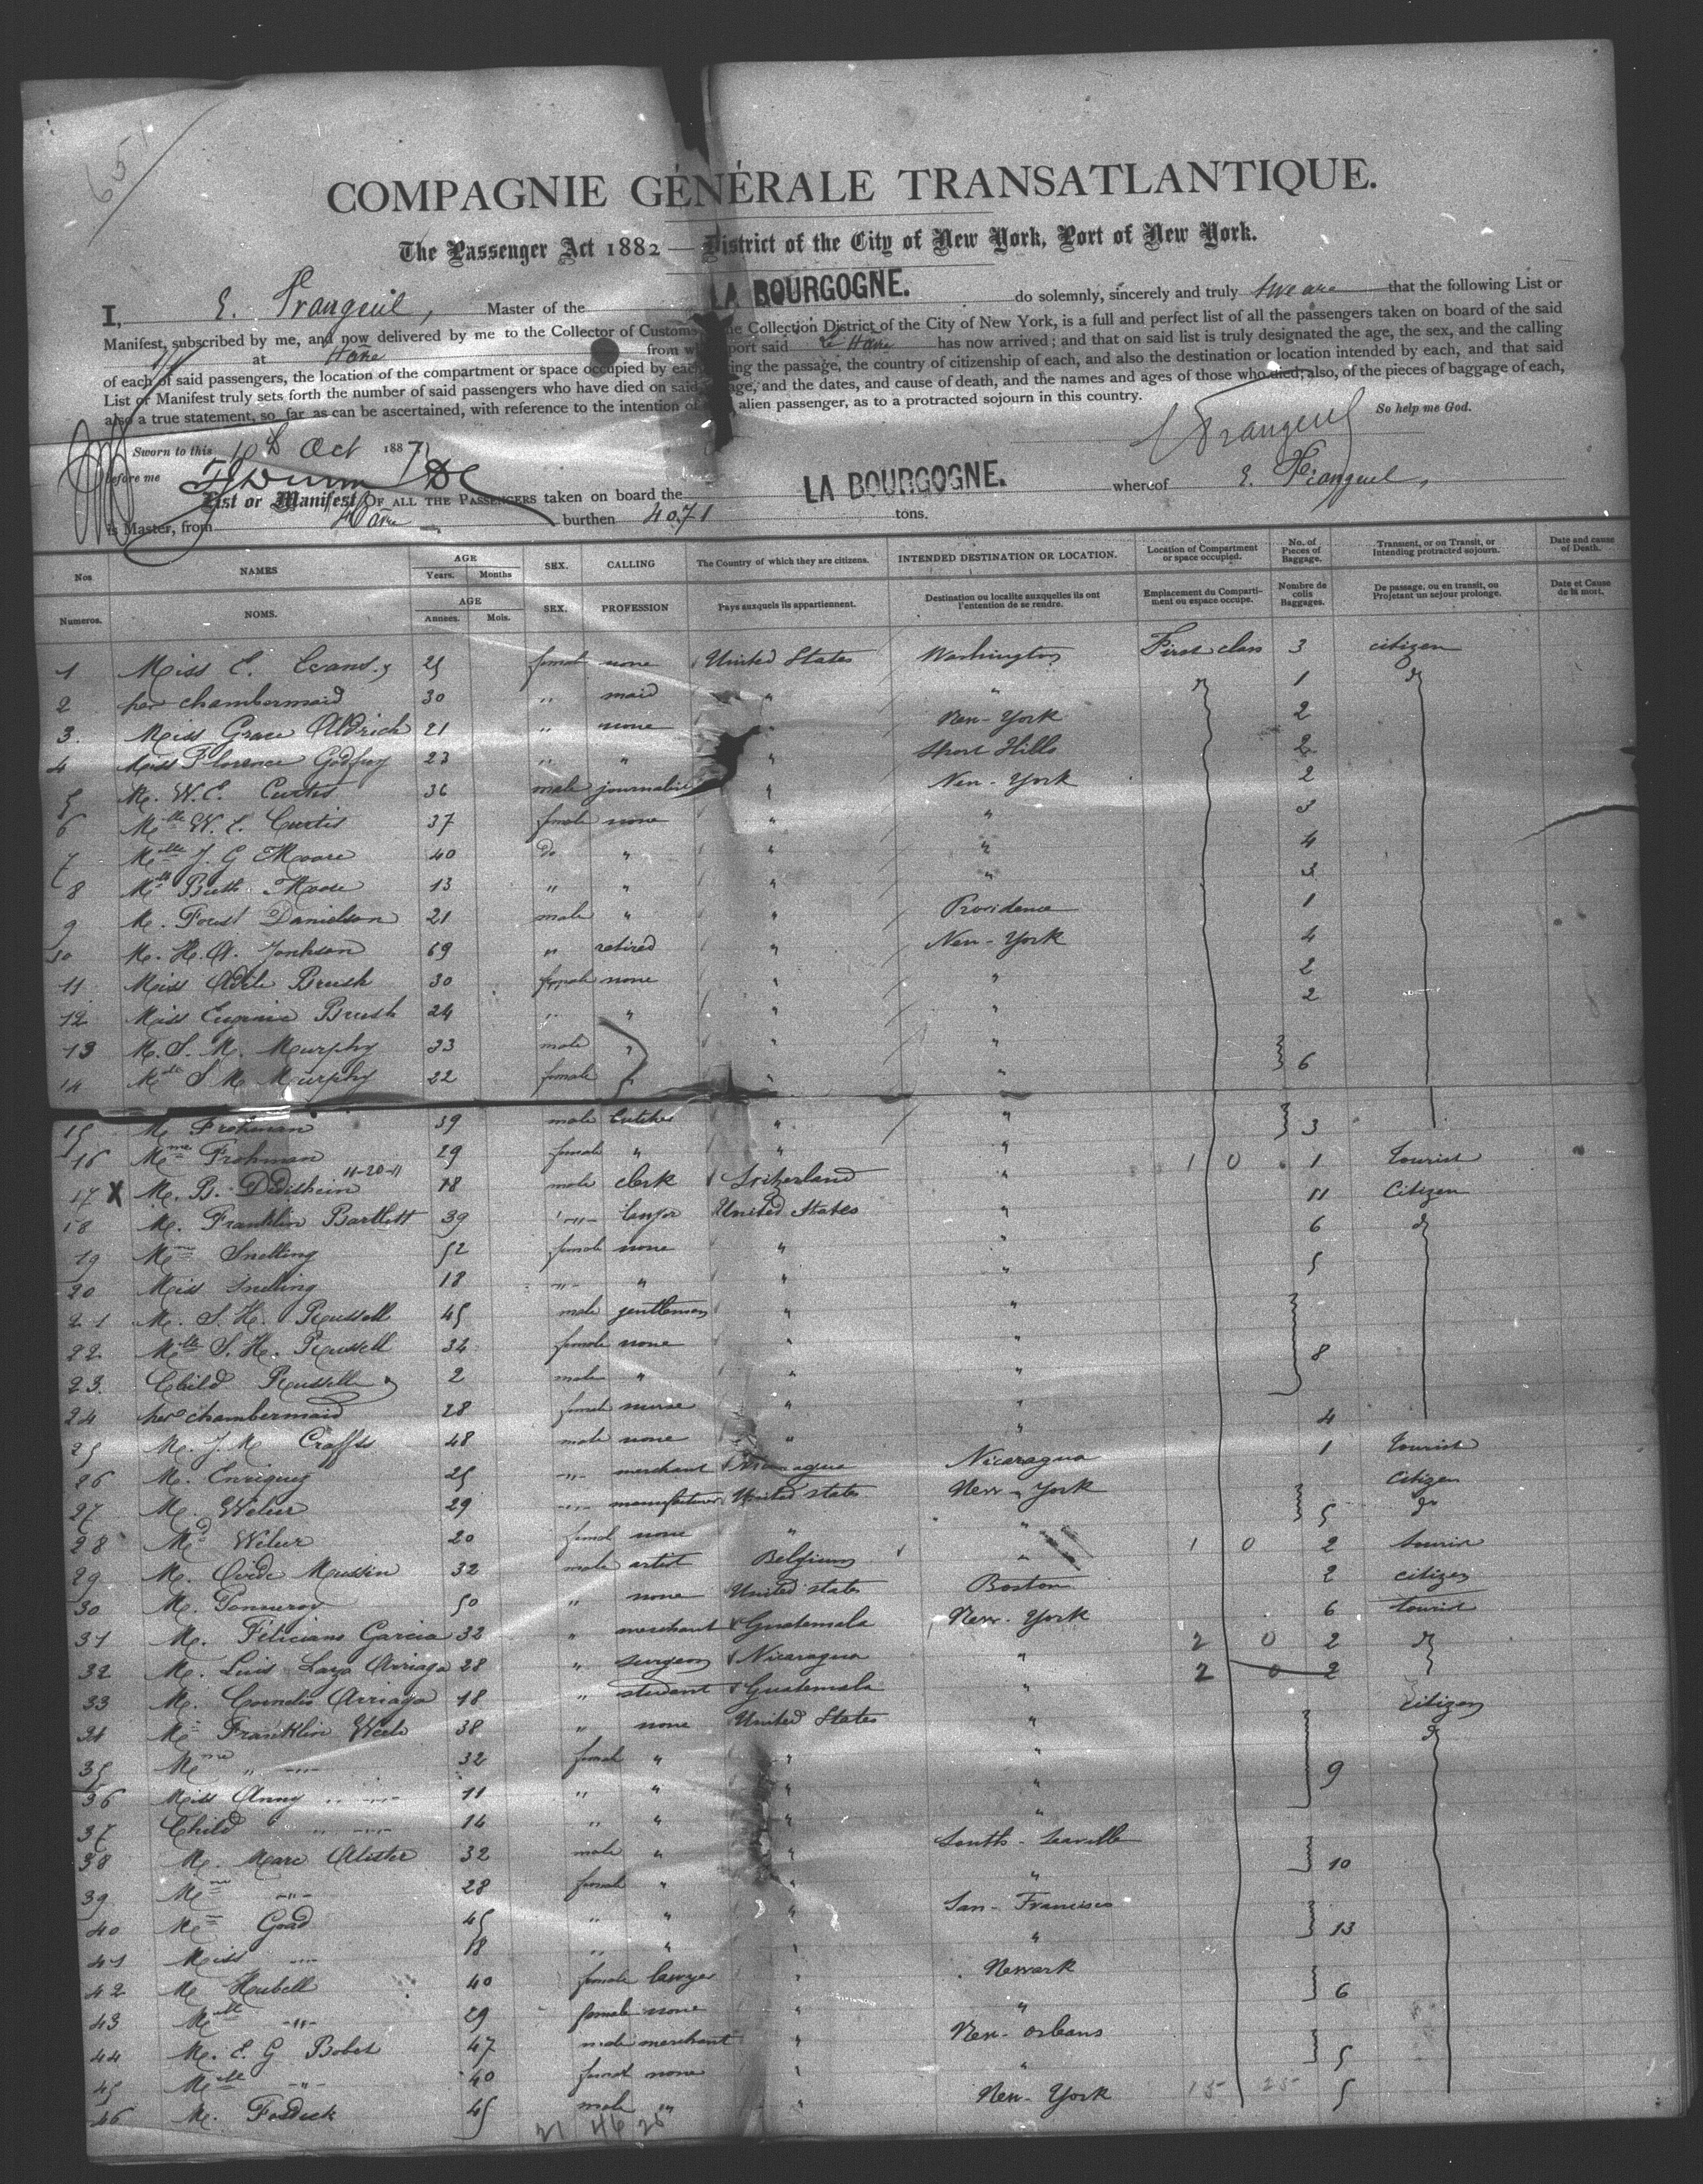 COMPAGNIE GÉNÉRALE TRANSATLANTIQUE.
The Passenger Act 1882 — District of the City of New York, Port of New York.
I, E. Frangeul, Master of the LA BOURGOGNE. do solemnly, sincerely and truly swear that the following List or
Manifest, subscribed by me, and now delivered by me to the Collector of Customs Collection District of the City of New York, is a full and perfect list of all the passengers taken on board of the said
at Havre from port said Le Havre has now arrived; and that on said list is truly designated the age, the sex, and the calling
of each of said passengers, the location of the compartment or space occupied by each the passage, the country of citizenship of each, and also the destination or location intended by each, and that said
List or Manifest truly sets forth the number of said passengers who have died on said and the dates, and cause of death, and the names and ages of those who died; also, of the pieces of baggage of each,
also a true statement, so far as can be ascertained, with reference to the intention of alien passenger, as to a protracted sojourn in this country.
So help me God.
Sworn to this 10th Oct 1887
before me
E. Frangeul
List or Manifest OF ALL THE PASSENGERS taken on board the LA BOURGOGNE. whereof E. Frangeul,
is Master, from Havre burthen 4071 tons.
Nos NAMES AGE Years. Months SEX. CALLING The Country of which they are citizens. INTENDED DESTINATION OR LOCATION. Location of Compartment or space occupied. No. of Pieces of Baggage. Transient, or on Transit, or Intending protracted sojourn. Date and cause of Death.
Numeros. NOMS. AGE Annees. Mois. SEX. PROFESSION Pays auxquels ils appartiennent. Destination ou localite auxquelles ils ont l'entention de se rendre. Emplacement du Compartiment ou espace occupe. Nombre de colis Baggages. De passage, ou en transit, ou Projetant un sejour prolonge. Date et Cause de la mort.
1 Miss E. Evans, 25 femal none United States Washington First class 3 citizen
2 her chambermaid 30 " maid " " 1 do
3. Miss Grace Aldrich 21 " none " New-York 2
4 Miss Florence Godfrey 23 " " " Short Hills 2
5 M. W. E. Curtis 36 male journalist " New-York 2
6 Mlle W. E. Curtis 37 female none " " 3
7 Mlle J. G Moore 40 do " " " 4
8 Mlle Ruth Moore 13 " " " " 3
9 M. Danielson 21 male " " Providence 1
10 M. H. A. 69 " retired " New-York 4
11 Miss Adele Brush 30 female none " " 2
12 Miss Eugenie Brush 24 " " " " 2
13 M. S. M. Murphy 33 male " " "
14 Mlle S. M. Murphy 22 female " " " 6
15 M. Frohman 39 male " "
16 Mme Frohman 29 female " " " 3
17 X M. B. 11-20-11 18 male clerk " 1 0 1 tourist
18 M. Franklin Bartlett 39 " United States " 11 Citizen
19 Mme Snelling 52 female none " " 6 do
20 Miss Snelling 18 " " " " 5
21 M. S. H. Russell 45 male gentleman " "
22 Mlle S. H. Russell 34 female none " "
23. Child Russell 2 male " " " 8
24 her chambermaid 28 femal nurse " "
25 M. J. M. Craffts 48 male none " " 4
26 M. Enriquez 25 " merchant Nicaragua Nicaragua 1 tourist
27 M. 29 " manufacturer United states New-York citizen
28 Md 20 femal none " " 5 do
29 M. Ovide 32 male artist Belgium " 1 0 2 tourist
30 M. 50 " none United states Boston 2 citizen
31 M. Feliciano Garcia 32 " merchant Guatemala New-York 6 tourist
32 M. Luis Arriaga 28 " surgeon Nicaragua " 2 0 2 do
33 M. Arriaga 18 " student Guatemala " 2 0 2
34 M. Franklin 38 " none United States " citizen
35 Mme " 32 femal " " " do
36 Miss Anny " 11 " " " " 9
37 Child " 14 " " " "
38 M. Marc Alister 32 male "
39 Mme " 28 female " " " 10
40 Mme Goad 45 " " " San-Francisco
41 Miss " 18 " " " " 13
42 M Hubell 40 female lawyer " Newark
43 Mlle " 29 female none " " 6
44 M. E. G 47 male merchant " New-orleans
45 Mlle " 40 femal none " " 5
46 M. Fosdick 45 male " " New-York 5
21 46 25